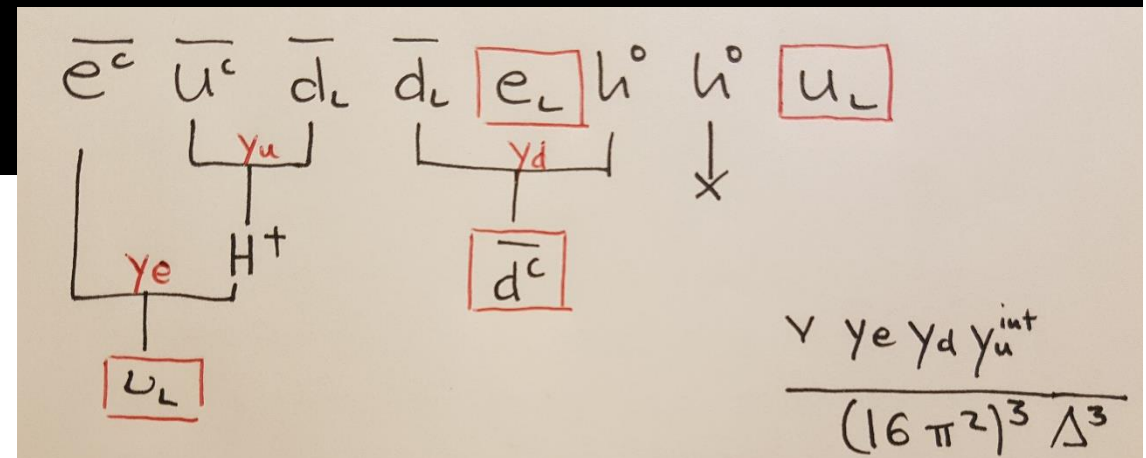 e̅ᶜ u̅ᶜ d̅_L d̅_L e_L h⁰ h⁰ u_L
yu yd
ye H⁺ d̅ᶜ
v ye yd yuⁱⁿᵗ
ν_L (16π²)³ Λ³